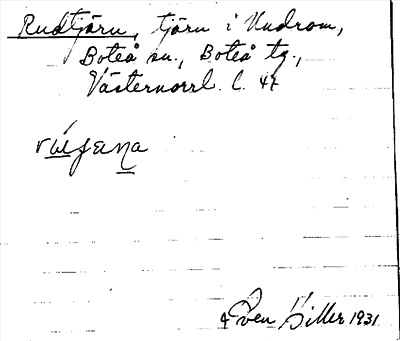 Rudtjärn, tjärn i Undrom,
Boteå sn., Boteå tg.,
Västernorrl. l. 47
Sven Hiller 1931